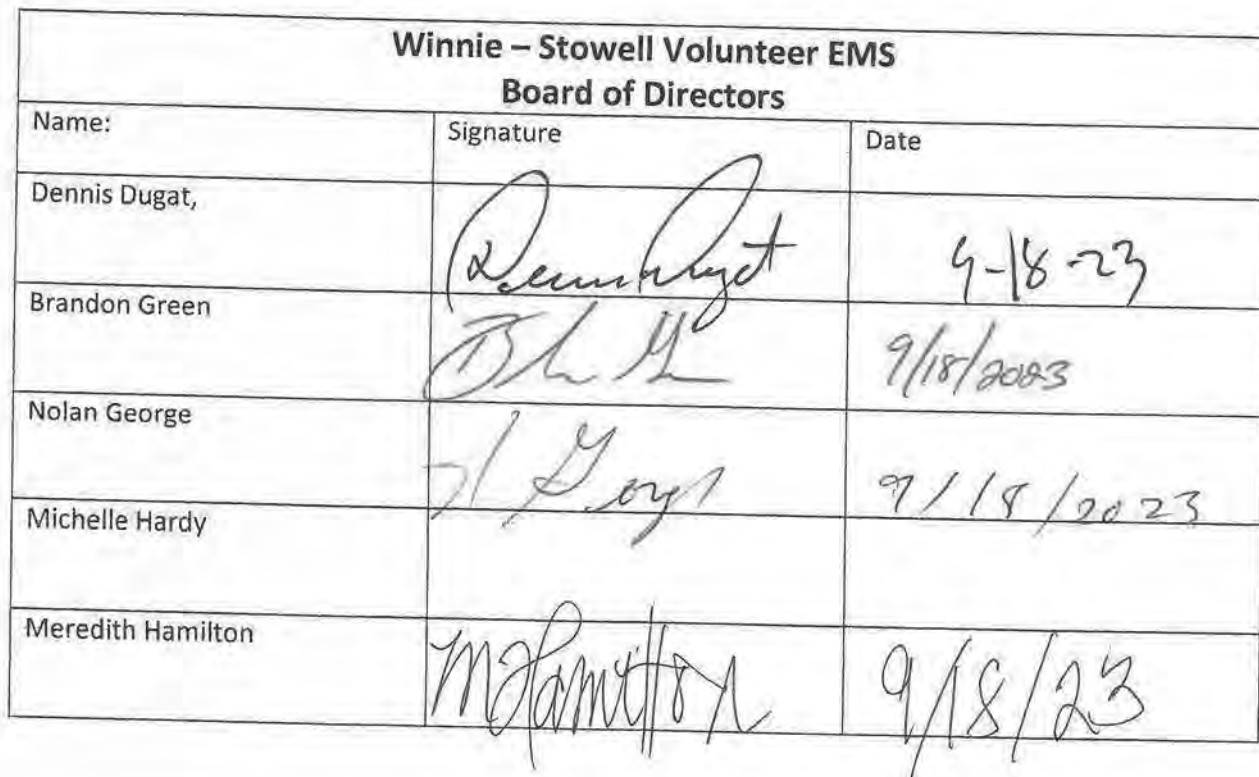 Winnie – Stowell Volunteer EMS
Board of Directors
Name: Signature Date
Dennis Dugat, 9-18-23
Brandon Green 9/18/2023
Nolan George 9/18/2023
Michelle Hardy
Meredith Hamilton MHamilton 9/18/23